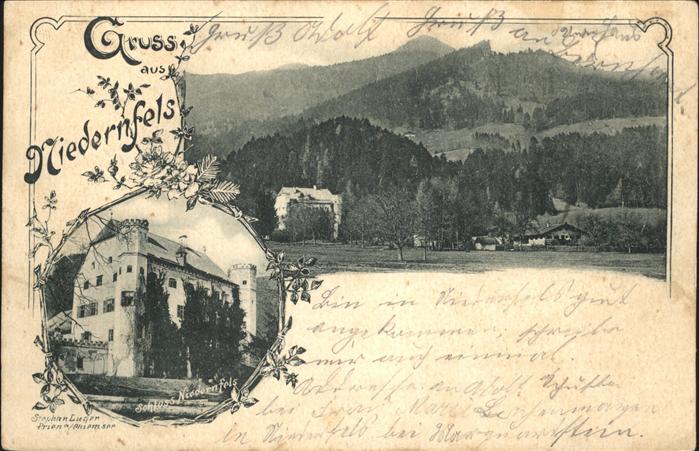 Gruss
aus
Niedernfels
Gruß Adolf Gruß an
Schloss Niedernfels
Stephan Luger
Prien a/Chiemsee
Bin in Niedernfels gut
angekommen, schreibe
mir auch einmal.
Adresse: an Adolf
bei Frau
in Niedernfels bei Marquartstein.